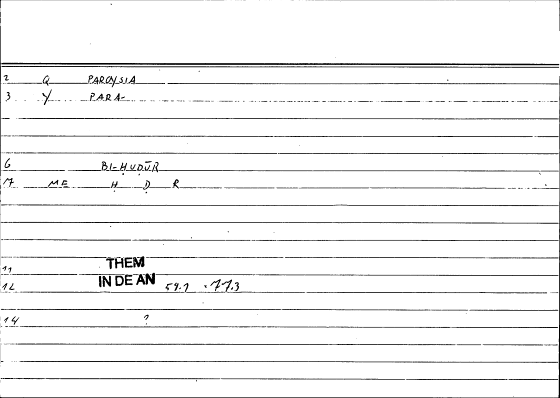 2 Q PAROYSIA
3 Y PARA-
6 BI-ḤUḌŪR
17 ME Ḥ Ḍ R
11 THEM
12 IN DE AN 59.1 · 77.3
14 ?